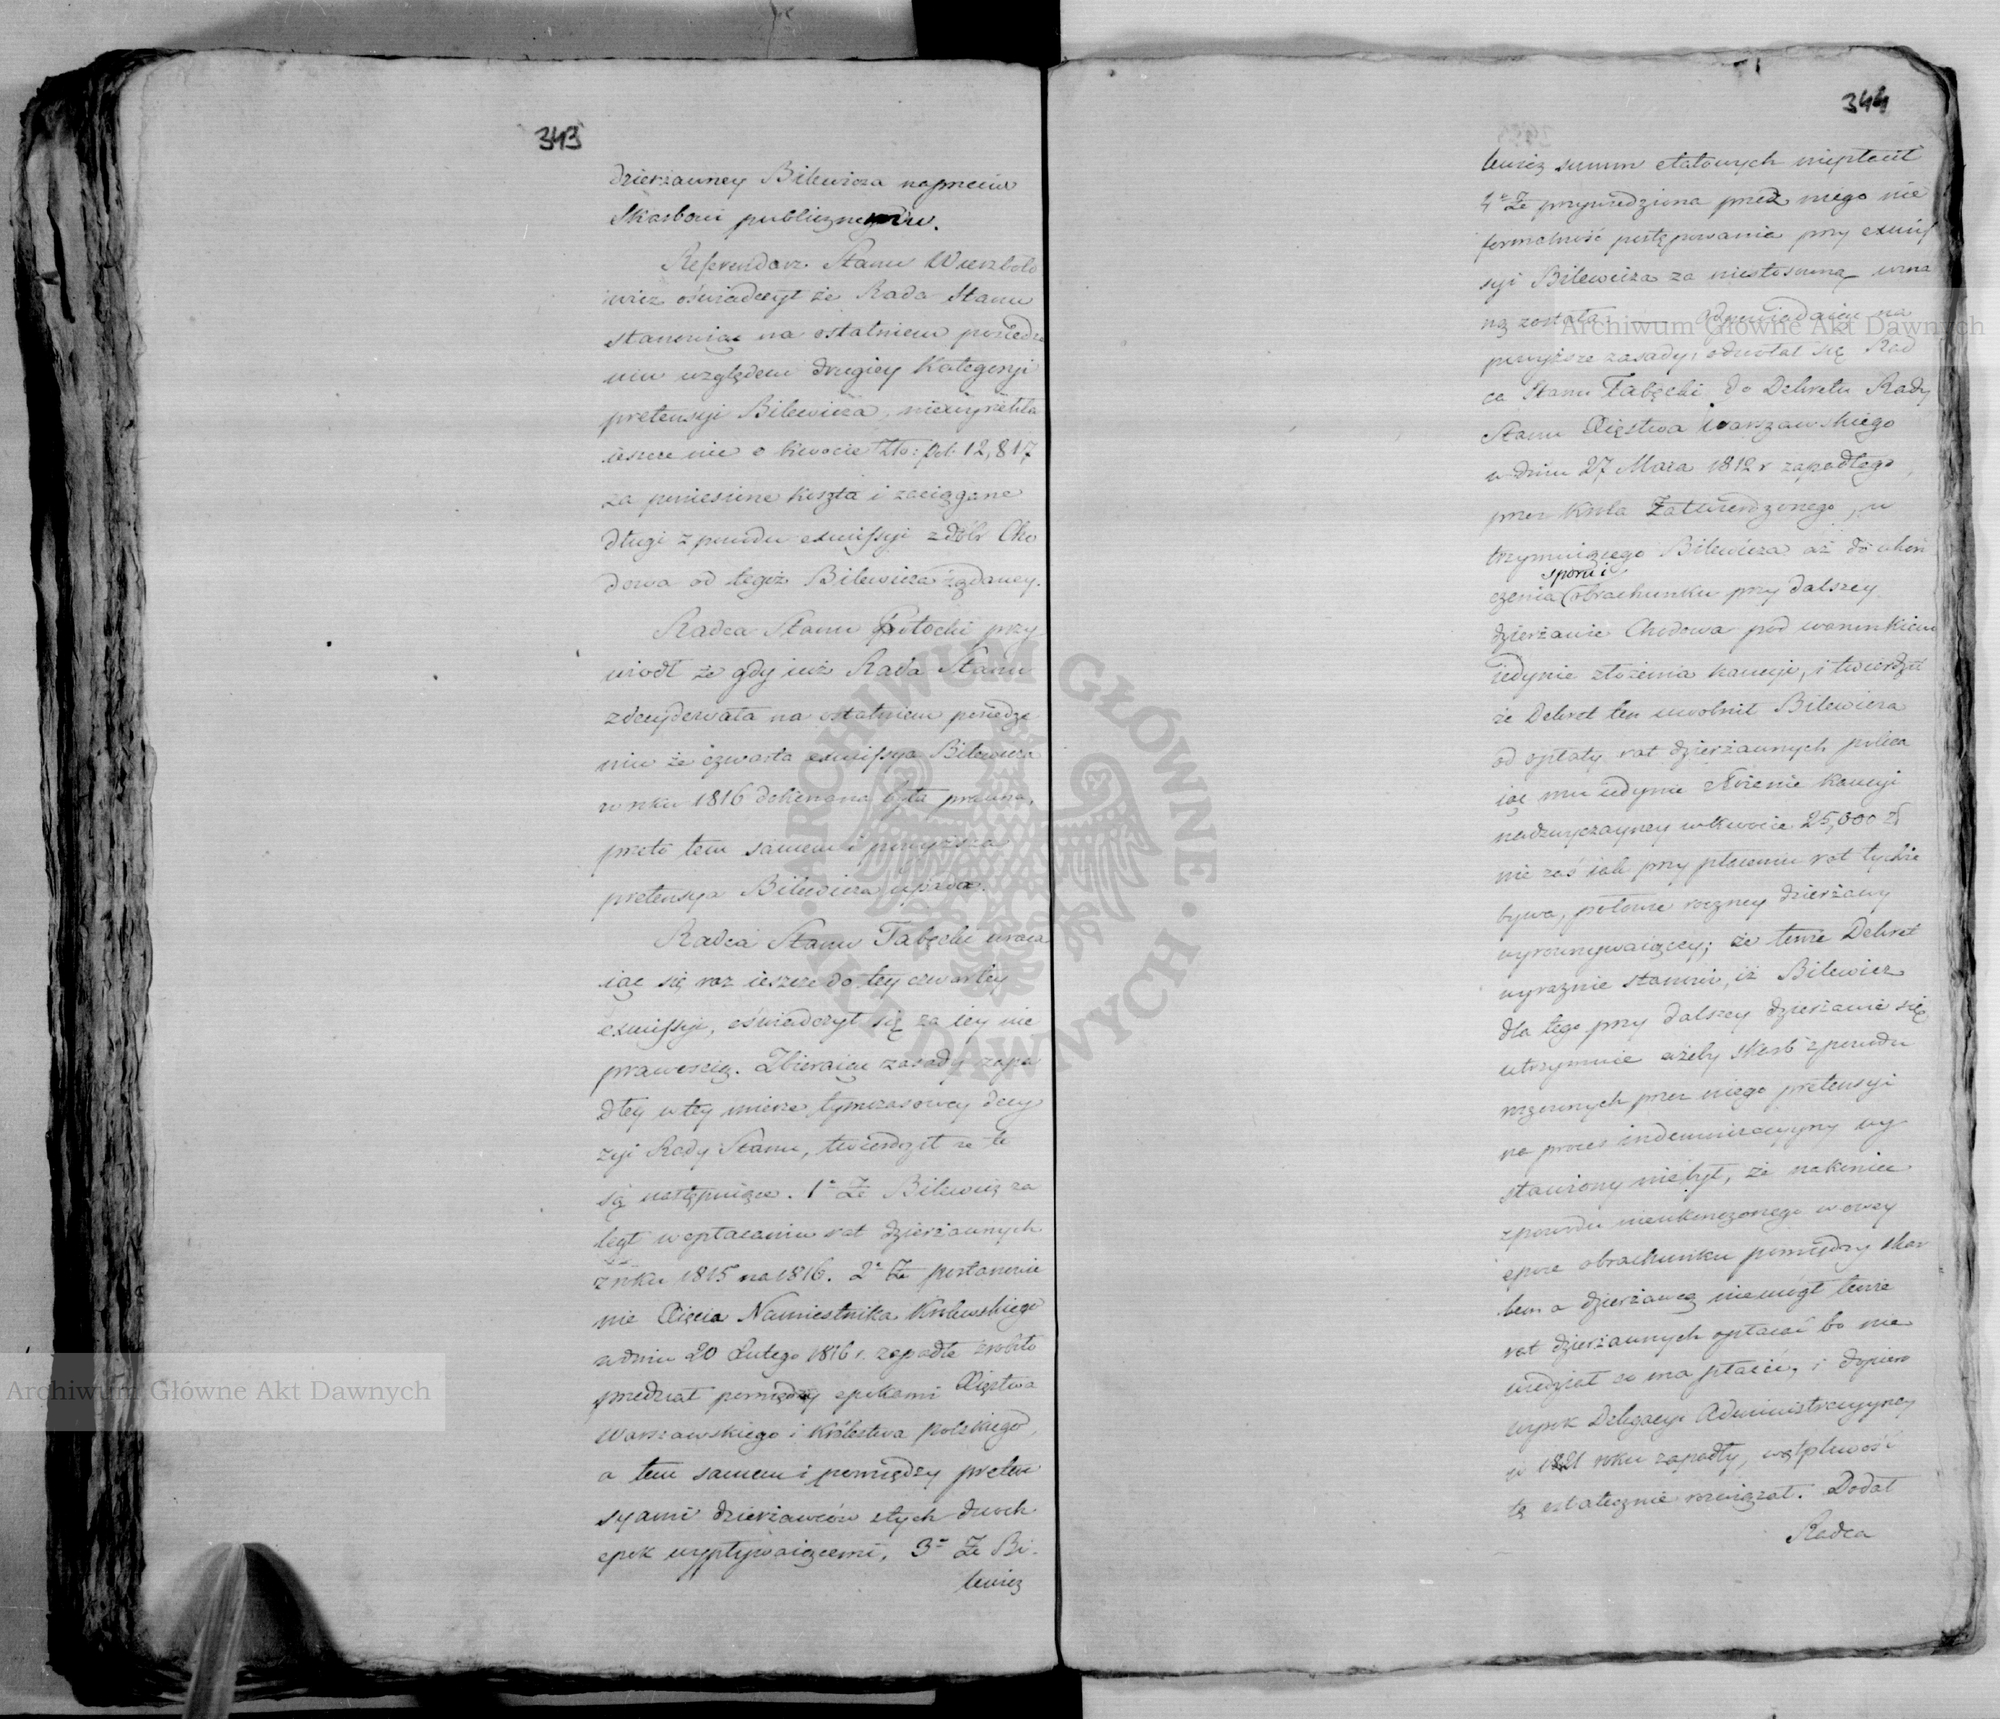 343
dzierżawney Bilewicza naprzeciw
Skarbowi publicznemu.
Referendarz Stanu Wierzboło
wicz oświadczył że Rada Stanu
stanowiąc na ostatniem posiedze
niu względem drugiey Kategoryi
pretensyi Bilewicza, niewyrzekła
ieszcze nic o kwocie Złto: pol: 12,817
za poniesione koszta i zaciągane
długi z powodu exmissyi z dóbr Cho
dowa od tegoż Bilewicza żądaney.
Radca Stanu Potocki przy
wiodł że gdy iuż Rada Stanu
zdecydowała na ostatniem posiedze
niu że czwarta exmissya Bilewicza
w roku 1816 dokonana była prawna,
przeto tem samem i powyższa
pretensya Bilewicza upada.
Radca Stanu Tabęcki wraca
iąc się raz ieszcze do tey czwartey
exmissyi, oświadczył się za iey nie
prawością. Zbieraiąc zasady zapa
dłey w tey mierze tymczasowey decy
zyi Rady Stanu, twierdził że te
są następuiące. 1e Że Bilewicz za
legł w opłacaniu rat dzierżawnych
z roku 1815 na 1816. 2e Że postanowie
nie Xięcia Namiestnika Królewskiego
w dniu 20 Lutego 1816 r. zapadłe zrobiło
przedział pomiędzy epokami Xięstwa
Warszawskiego i Królestwa Polskiego,
a tem samem i pomiędzy preten
syami dzierżawców z tych dwóch
epok wypływaiącemi, 3e Że Bi-
lewicz
344
lewicz summ etatowych niepłacił
4e Że przywiedziona przez niego nie
formalność postępowania przy exmis
syi Bilewicza za niestosowną uzna
ną została. — Odpowiadaiąc na
powyższe zasady, odwołał się Rad
ca Stanu Tabęcki do Dekretu Rady
Stanu Xięstwa Warszawskiego
w dniu 27 Maia 1812 r zapadłego,
przez Króla Zatwierdzonego, u
trzymuiącego Bilewicza aż do ukoń
sporu i
czenia obrachunku przy dalszey
dzierżawie Chodowa pod warunkiem
iedynie złożenia kaucyi, i twierdził
że Dekret ten uwolnił Bilewicza
od opłaty rat dzierżawnych poleca
iąc mu iedynie złożenie kaucyi
nadzwyczayney w kwocie 25,000 zł
nie zaś iak przy płaceniu rat tychże
bywa, połowie roczney dzierżawy
wyrównywaiącey; że tenże Dekret
wyraznie stanowi, iż Bilewicz
dla tego przy dalszey dzierżawie się
utrzymuie ażeby Skarb z powodu
rozszerzonych przez niego pretensyi
na proces indemnizacyiny wy
stawiony niebył, że nakoniec
z powodu nieukończonego w owey
epoce obrachunku pomiędzy Skar
bem a dzierżawcą niemógł tenże
rat dzierżawnych opłacać bo nie
wiedział co ma płacić, i dopiero
wyrok Delegacyi Administracyiney
w 1821 roku zapadły, wątpliwość
tę ostatecznie rozwiązał. Dodał
Radca
Archiwum Główne Akt Dawnych
Archiwum Główne Akt Dawnych
ARCHIWUM GŁÓWNE AKT DAWNYCH